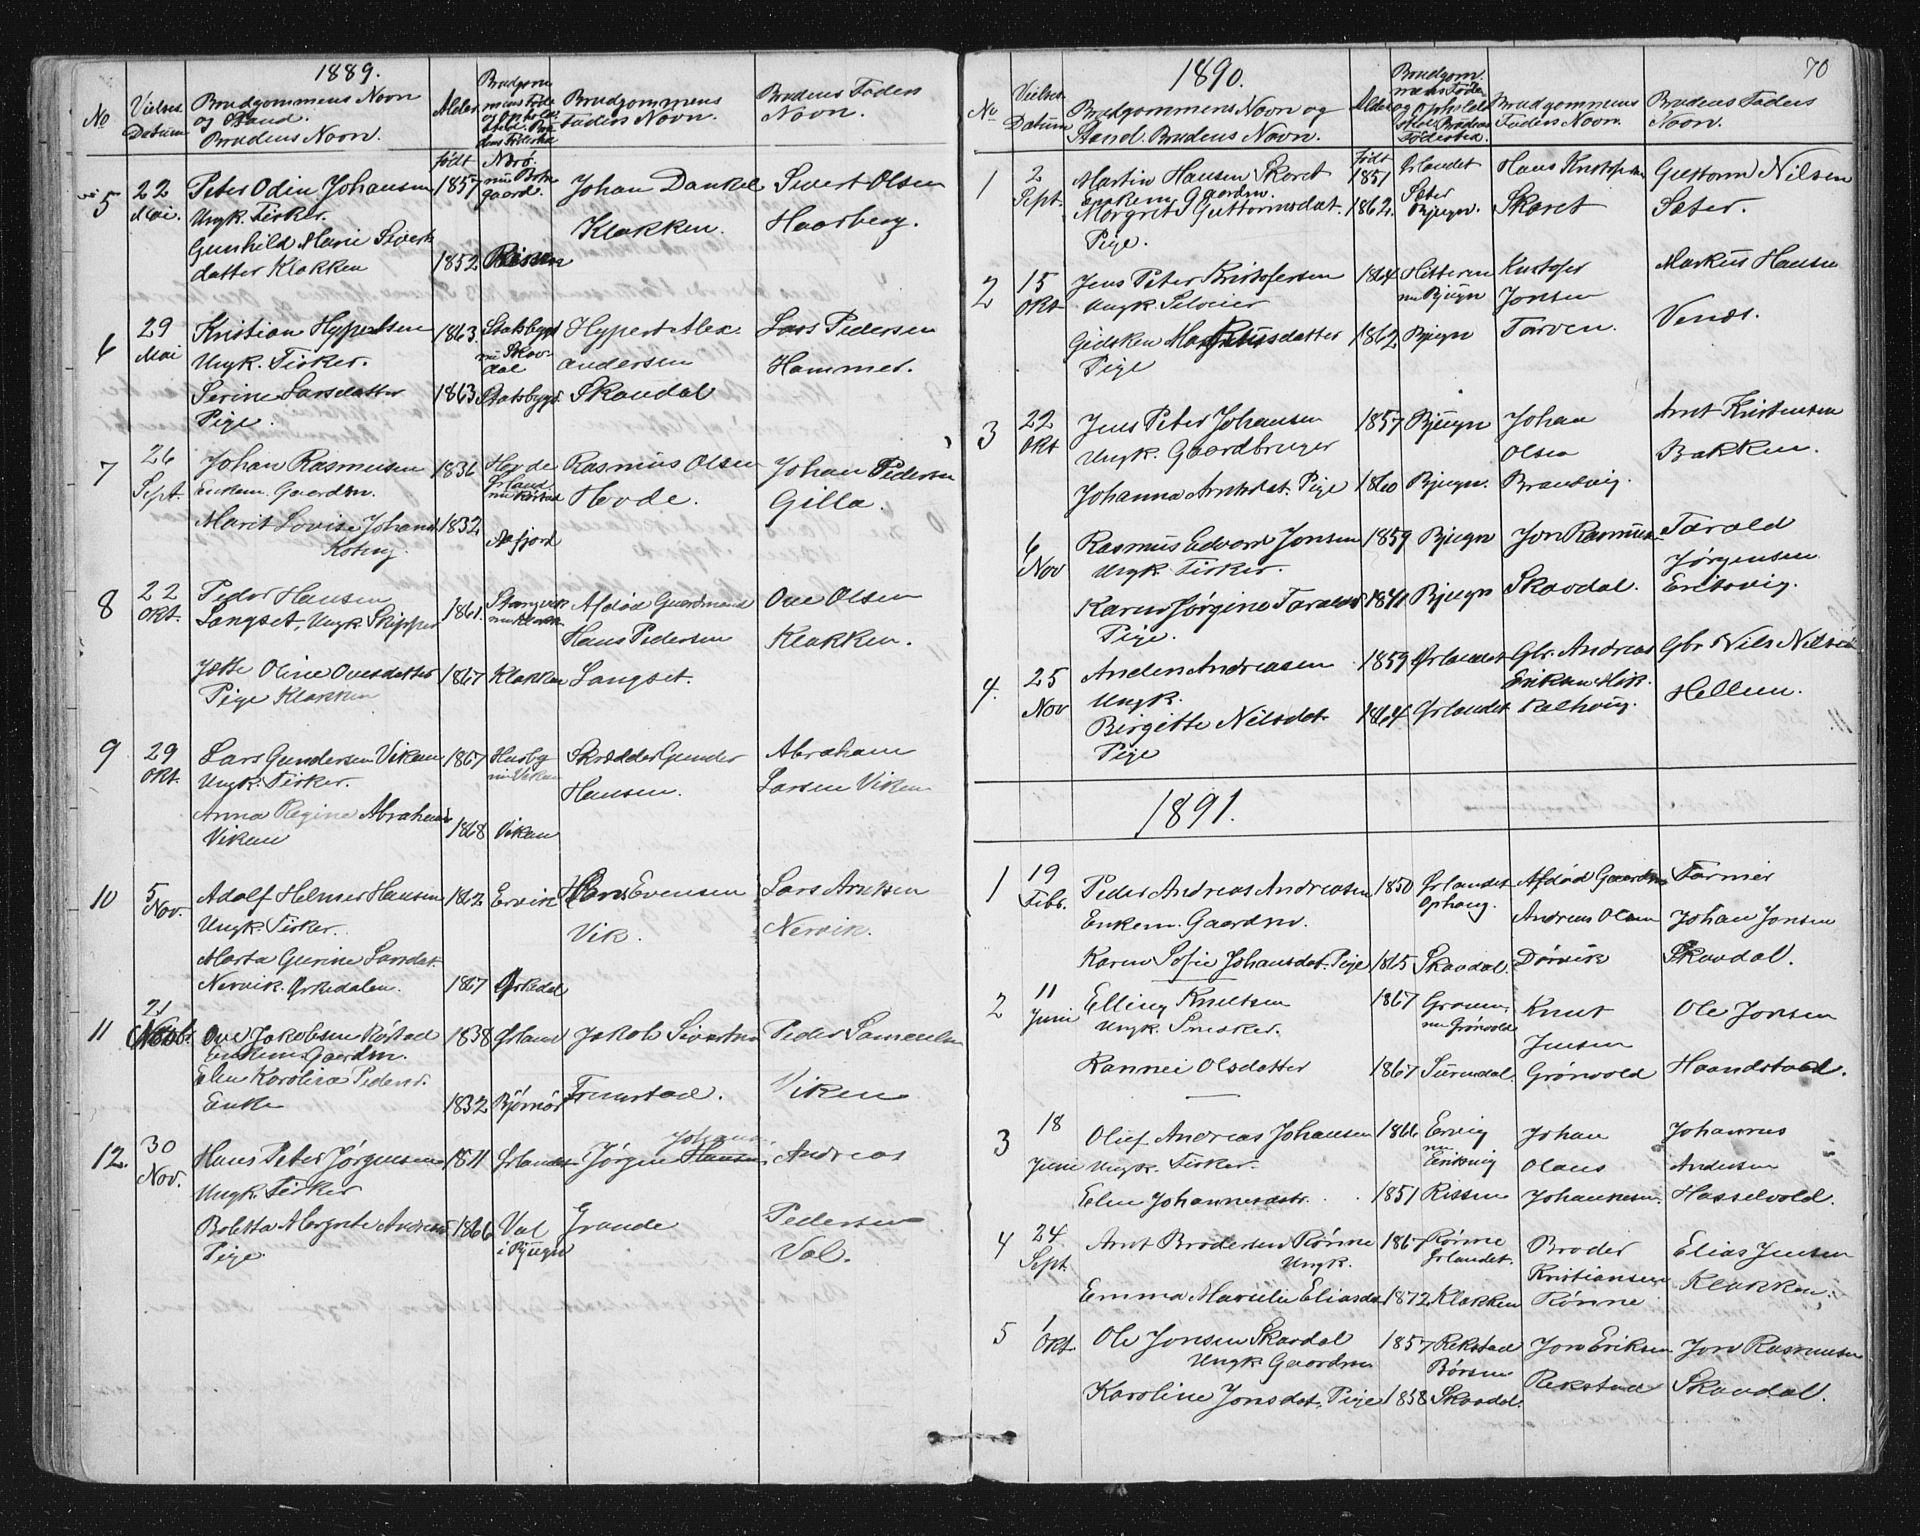 1889.
No
Vielses Datum
Brudgommens Navn
og Stand.
Brudens Navn.
Alder
Brudgommens
Faders Navn.
Brudens Faders
Navn.
5
22
Mai.
Peter Odin Johansen
Ungk. Fisker.
Gunhild Marie Siverts
datter Klakken
født
1857
1852
Nærø.
nu Botn
gaard.
Rissen
Johan Dankel
Klakken.
Sivert Olsen
Haarberg.
6
29
Mai
Kristian Hypertsen
Ungk. Fisker.
Serine Larsdatter
Pige.
1863.
1863
Statsbygd
nu Skav-
dal
Statsbygd.
Hypert Alex-
andersen
Skavdal
Lars Pedersen
Hammer.
7
26
Sept.
Johan Rasmusen
Enkem. Gaardm.
Marit Lovise Johans
1836
1832
Hovde
Ørland.
Aafjord
Rasmus Olsen
Hovde.
Johan Pedersen
Gilla.
8
22
Okt.
Peder Hansen
Langset, Ungk. Skipper
Jætte Oline Ovesdatter
Pige Klakken
1861.
1867
Stangvik
nu Klakk
Klakken
Afdød Gaardmand
Hans Pedersen
Langset.
Ove Olsen
Klakken.
9
29
Okt.
Lars Gundersen Vikan
Ungk. Fisker.
Anna Regine Abrahams
Vikan
1867
1868
Husby
nu Vikan
Vikan
Skrædder Gunder
Hansen.
Abraham
Larsen Viken
10
5
Nov.
Adolf Helmer Hansen
Ungk. Fisker.
Marta Gurine Larsdat.
Nervik. Ørkedalen.
1862
1867
Ervik
Ørkedal
Hans Evensen
Vik.
Lars Arntsen
Nervik.
11
21
Novbr.
Ove Jakobsen Røstad
Enkem. Gaardm.
Elen Karolina Pedersd.
Enke
1838
1832
Ørland
Bjørnør
Jakob Sivertsen
Fremstad.
Peder Samuelsen
Viken
12.
30
Nov.
Hans Peter Jørgensen
Ungk. Fisker
Boletta Margrete Andreasd
Pige.
1866
Ørlandet
Val
i Bjugn
Johann.
Jørgen Hansen
Grande
Andreas
Pedersen
Val.
70
1890.
No
Vielses
Datum
Brudgommens Navn og
Stand. Brudens Navn.
Alder
Brudgommens
Faders Navn.
Brudens Faders
Navn.
1
2
Sept.
Martin Hansen Skaret
Enkem. Gaardm.
Margret Guttormsdat.
Pige.
født
1851
1862.
Ørlandet
Sæter
Bjugn.
Hans Kristofersen
Skaret
Guttorm Nilsen
Sæter.
2
15
Okt
Jens Peter Kristofersen
Ungk.
Gidsken Markusdatter
Pige
1864
1862
Hitteren
nu Bjugn
Bjugn
Kristofer
Jonsen
Tarven.
Markus Hansen
Venæs.
3
22
Okt
Jens Peter Johansen
Ungk. Gaardbruger
Johanna Arntsdat. Pige
1857
1860
Bjugn
Bjugn.
Johan
Olsen
Brandvig.
Arnt Kristensen
Bakken.
6
Nov
Rasmus Edvard Jonsen
Ungk. Fisker.
Karen Jørgine Taraldsd
Pige.
1859
Bjugn
Bjugn
Jon Rasmusen
Skavdal.
Tarald
Jørgensen
Eriksvig.
4.
25
Nov
Anders Andreasen
Ungk.
Birgitte Nilsdat.
Pige
1859
1864
Ørlandet
Ørlandet
Gbr. Andreas
Gbr. Nils Nilsen
Hellem.
1891.
1
19
Febr.
Peder Andreas Andreasen
Enkem. Gaardm.
Karen Sofie Johansdat. Pige
1850
1865
Ørlandet
Ophaug.
Skavdal.
Afdød Gaardm
Andreas Olsen
Dørvik
Farmer
Johan Jonsen
Skavdal.
2
11
Juni
Elling Knutsen
Ungk. Snekker.
Rannei Olsdatter
1867
1867
nu Grønvold
Surendal
Knut
Jensen
Grønvold
Ole Jonsen
Haandstad.
3
18
Juni
Oluf Andreas Johansen
Ungk. Fisker.
Elen Johannesdtr.
1866
1851
Ervig
nu
Eriksvig
Rissen
Johan
Olaus
Johansen.
Johannes
Andersen
Hasselvold.
4
24
Sept.
Arnt Brodersen Rønne
Ungk.
Emma Marselie Eliasdat
1867
1872
Rønne
Ørlandet.
Klakken
Broder
Kristiansen
Rønne
Elias Jensen
Klakken.
5
1
Okt.
Ole Jonsen Skavdal
Ungk Gaardm
Karoline Jonsdat. Pige
1857
1858
Rekstad
Børsen
Skavdal.
Jon Eriksen
Rekstad
Jon Rasmusen
Skavdal.